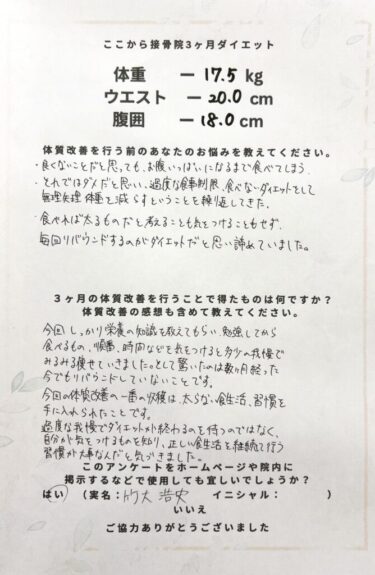 ここから接骨院3ヶ月ダイエット
体重 －17.5 kg
ウエスト －20.0 cm
腹囲 －18.0 cm
体質改善を行う前のあなたのお悩みを教えてください。
・良くないことだと思っても、お腹いっぱいになるまで食べてしまう
・それではダメだと思い、過度な食事制限、食べないダイエットをして
無理矢理体重を減らすということを繰り返してきた。
・食べれば太るものだと考えることも気をつけることもせず、
毎回リバウンドするのがダイエットだと思い諦めていました。
3ヶ月の体質改善を行うことで得たものは何ですか？
体質改善の感想も含めて教えてください。
今回しっかり栄養の知識を教えてもらい、勉強してから
食べるもの、順番、時間などを気をつけると多少の我慢で
みるみる痩せていきました。そして驚いたのは数ヶ月経った
今でもリバウンドしていないことです。
今回の体質改善の一番の収穫は、太らない食生活、習慣を
手に入れられたことです。
過度な我慢でダイエットが終わるのを待つのではなく、
自分が気をつけるものを知り、正しい食生活を継続して行う
習慣が大事なんだと気づきました。
このアンケートをホームページや院内に
掲示するなどで使用しても宜しいでしょうか？
はい （実名：竹大 浩史 イニシャル： ）
いいえ
ご協力ありがとうございました